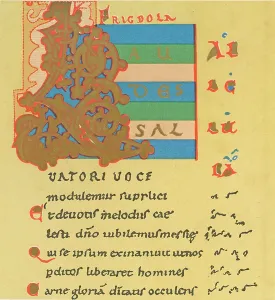 FRIGDOLA
L AU
DES
SAL
UATORI UOCE
modulemur supplici
Et deuotis melodiis cae
lesti dño iubilemus messię
Qui se ipsum exinaniuit ut nos
pditos liberaret homines
Carne gloriā deitatis occulens
Al
le
lu
ia